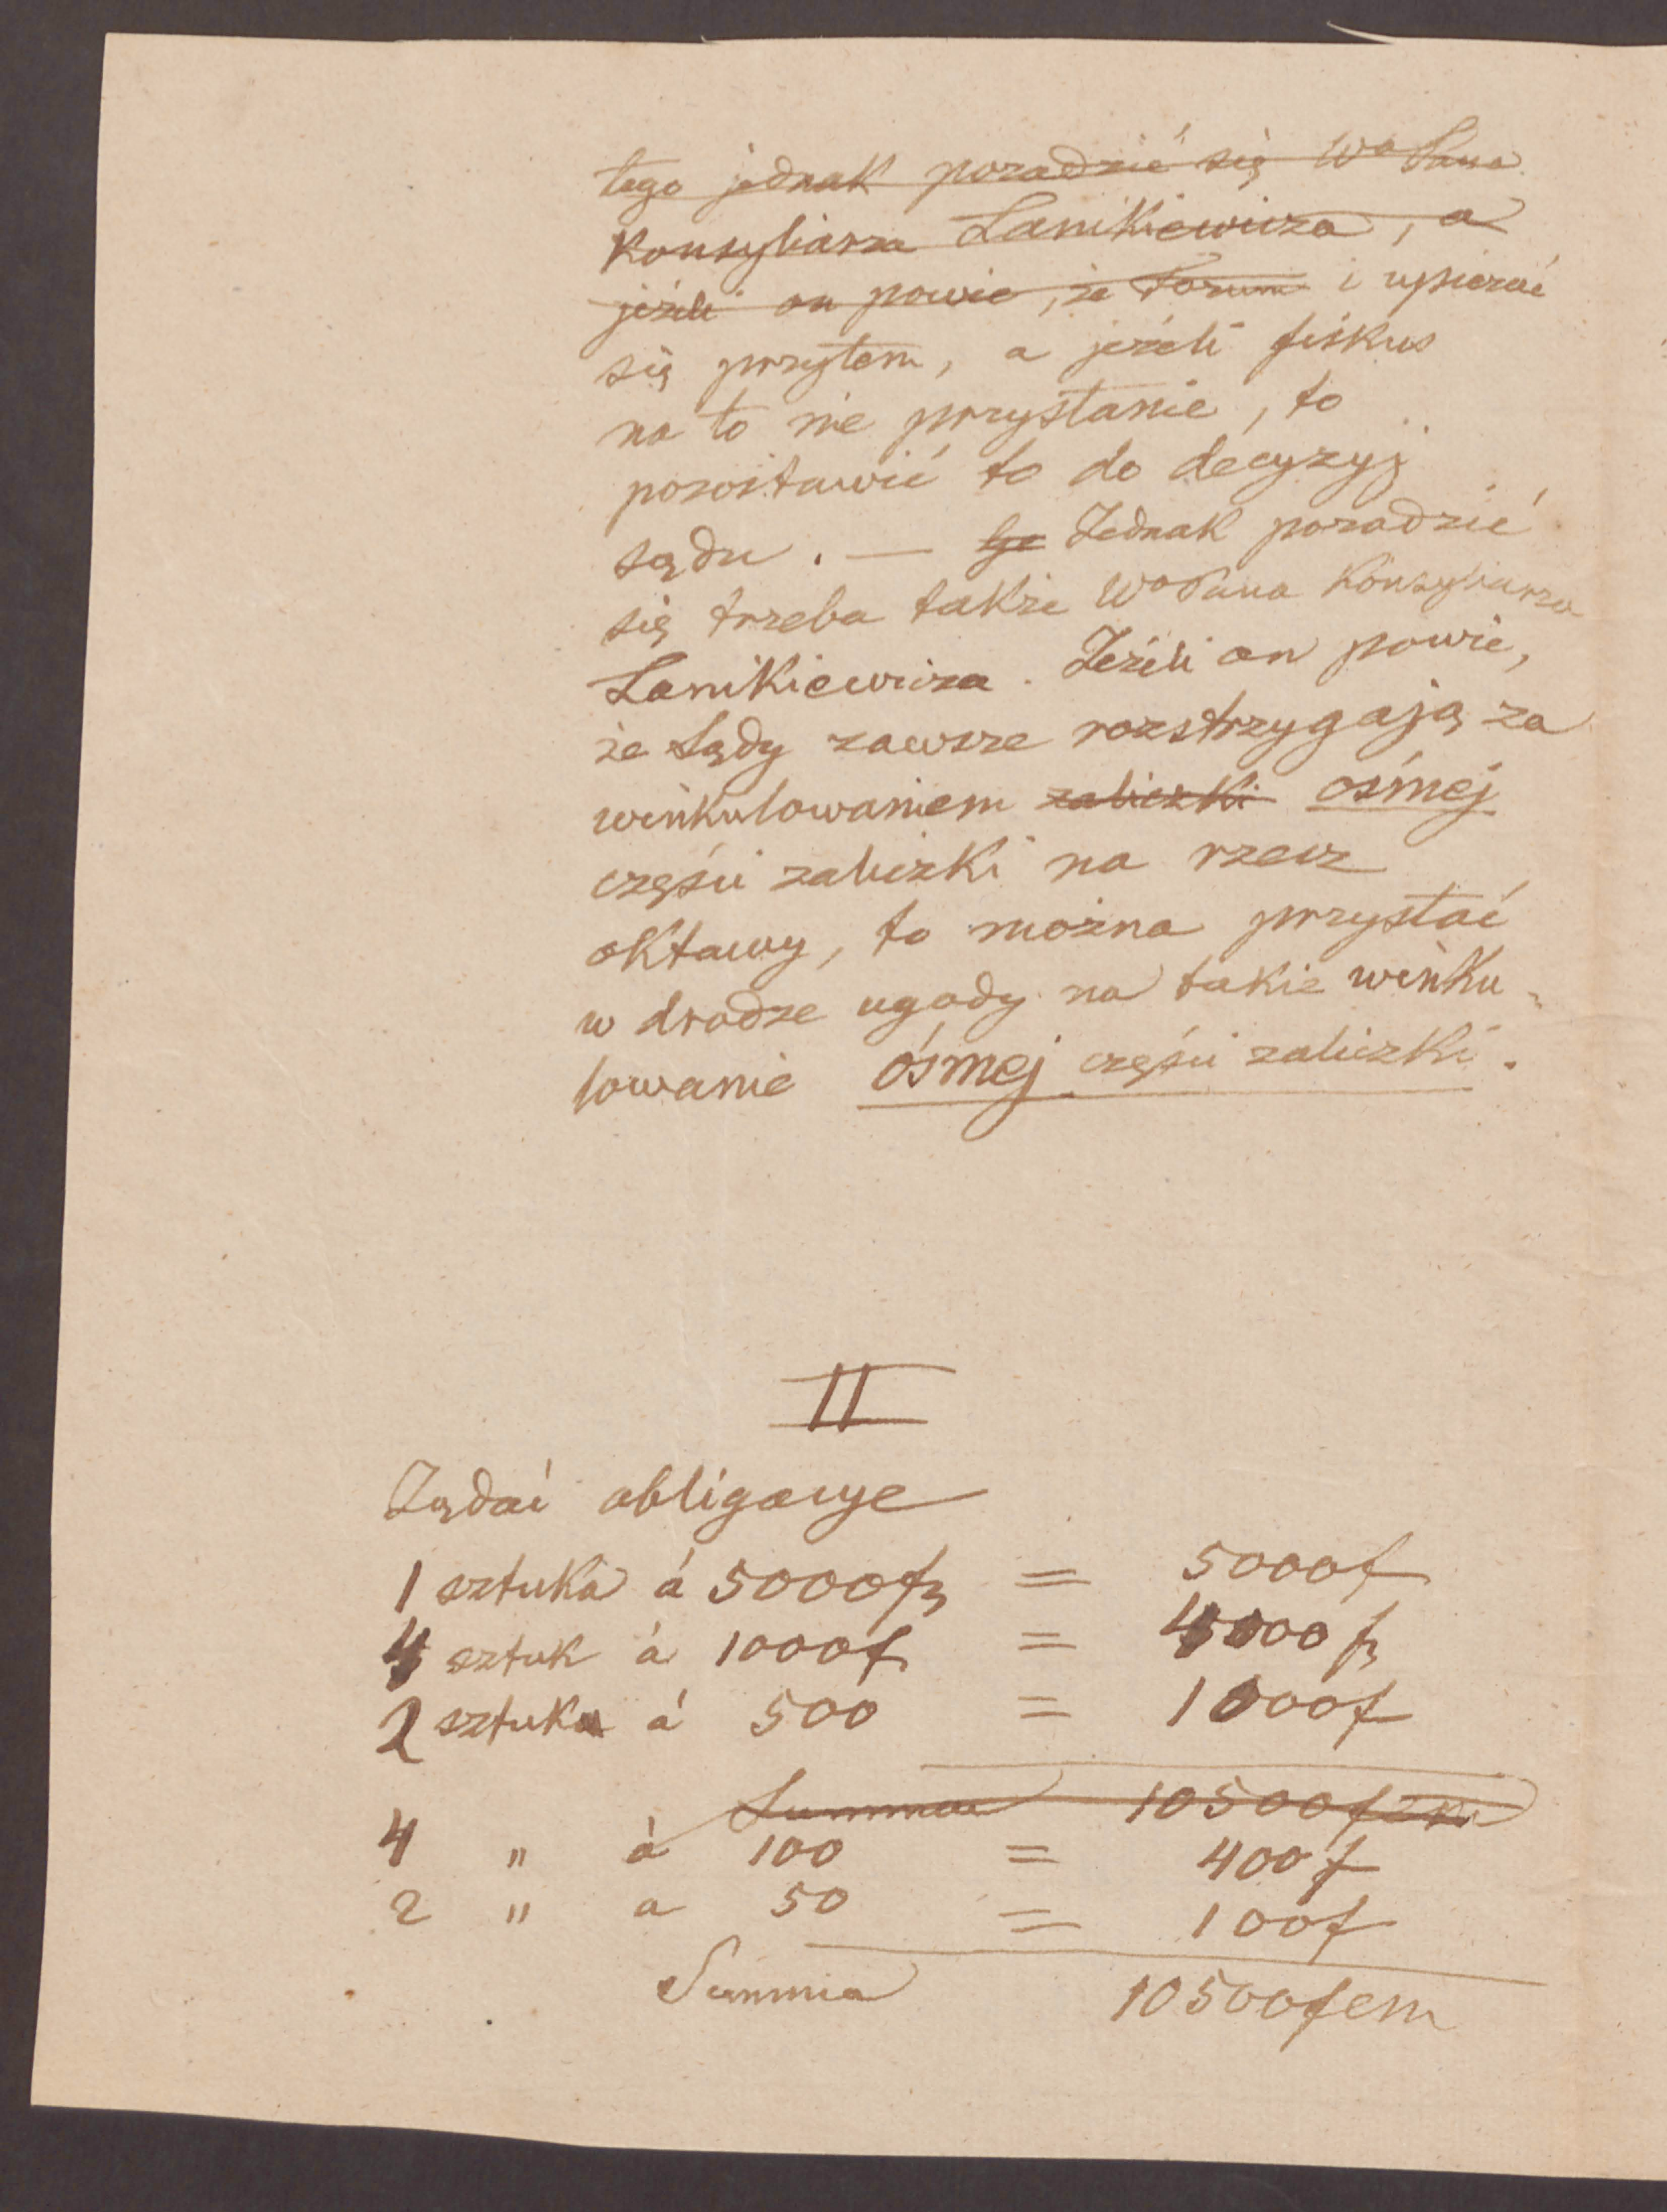 tego jednak poradzić się Wo Pana
Konsyliarza Lanikiewicza, a
jeżeli on powie, że Forum i upierać
się przytem, a jeżeli fiskus
na to nie przystanie, to
pozostawić to do decyzyj
sądu. — Jednak poradzić
się trzeba także Wo Pana Konsyliarza
Lanikiewicza. Jeżeli on powie,
że Sądy zawsze rozstrzygają za
winkulowaniem zaliczki ósmej
części zaliczki na rzecz
oktawy, to można przystać
w drodze ugody na takie winku-
lowanie ósmej części zaliczki.
II
Żądać obligacye
1 sztuka á 5000f = 5000f
4 sztuk á 1000f = 4000f
2 sztuka á 500 = 1000f
Summa 10500f cm
4 " á 100 = 400f
2 " a 50 = 100f
Summa 10500fcm